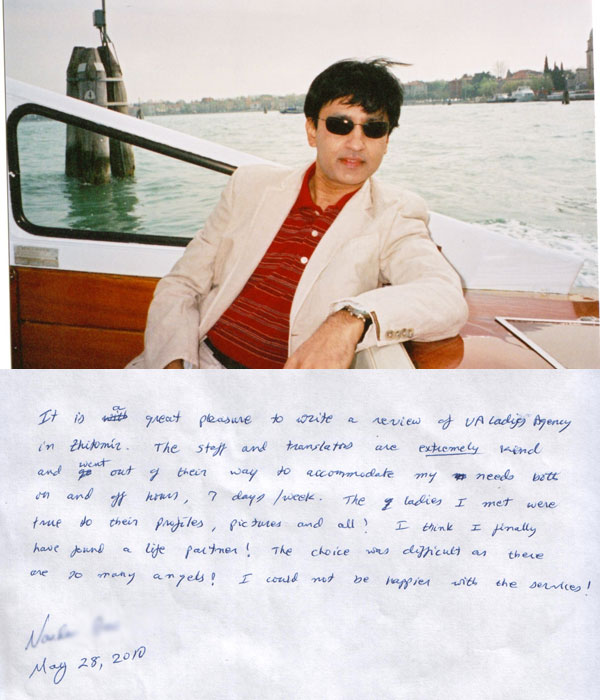 It is a great pleasure to write a review of UA Ladies Agency
in Zhitomir. The staff and translators are extremely kind
and went out of their way to accommodate my needs both
on and off hours, 7 days/week. The ladies I met were
true to their profiles, pictures and all! I think I finally
have found a life partner! The choice was difficult as there
are so many angels! I could not be happier with the services!
May 28, 2010